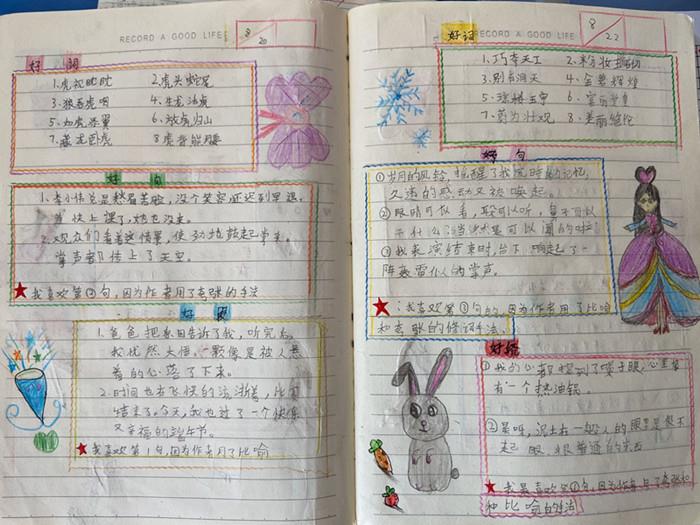 RECORD A GOOD LIFE
8
20
好 词
1.虎视眈眈 2.虎头蛇尾
3.狼吞虎咽 4.生龙活虎
5.如虎添翼 6.放虎归山
7.藏龙卧虎 8.虎背熊腰
好 句
1.李小伟总是愁眉苦脸,没个笑容,
快上课了,她也没来。
2.观众们看着这情景,使劲地鼓起掌来。
掌声都传上了天空。
★我喜欢第②句,因为作者用了夸张的手法
好 段
1.爸爸把原因告诉了我,听完后,
我恍然大悟,一颗像是被人悬
着的心落了下来。
2.时间也在飞快的流逝着,
结束了,今天,我也过了一个快乐
又幸福的端午节。
★我喜欢第1句,因为作者用了比喻
RECORD A GOOD LIFE
8
22
好词
1.巧夺天工 2.粉妆玉砌
3.别有洞天 4.金碧辉煌
5.琼楼玉宇 6.富丽堂皇
7.蔚为壮观 8.美丽绝伦
好 句
①岁月的风铃,提醒了我风时的记忆,
久违的感动又被唤起。
②眼睛可以看,耳朵可以听,鼻子可以
干什么?当然是可以闻的啦!
③我表演结束时,台下响起了一
阵轰雷似的掌声。
★:我喜欢第③句的,因为作者用了比喻
和夸张的修辞手法。
好段
①我的心都提到了嗓子眼,心里
有一个热油锅。
②是呀,泥土在一般人的眼里是很不
起眼、很普通的东西
★我最喜欢第①句,因为作者用了夸张和
和比喻的手法